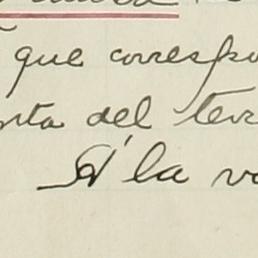 que correspo
rta del terr
Si la va